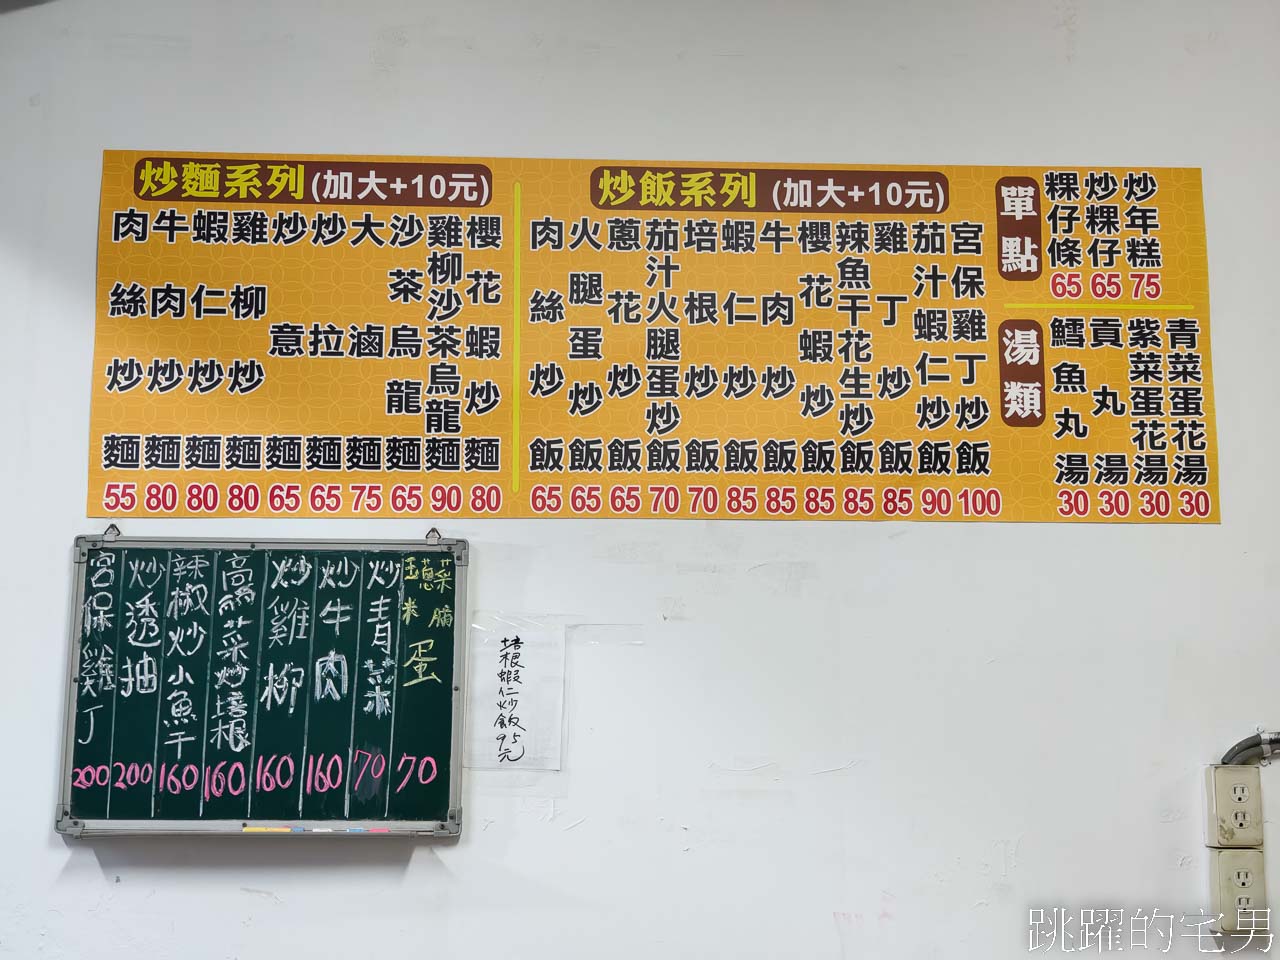 炒麵系列(加大+10元)
肉絲炒麵 55
牛肉炒麵 80
蝦仁炒麵 80
雞柳炒麵 80
炒意麵 65
炒拉麵 65
大滷麵 75
沙茶烏龍麵 65
雞柳沙茶烏龍麵 90
櫻花蝦炒麵 80
炒飯系列(加大+10元)
肉絲炒飯 65
火腿蛋炒飯 65
蔥花炒飯 65
茄汁火腿蛋炒飯 70
培根炒飯 70
蝦仁炒飯 85
牛肉炒飯 85
櫻花蝦炒飯 85
辣魚干花生炒飯 85
雞丁炒飯 85
茄汁蝦仁炒飯 90
宮保雞丁炒飯 100
單點
粿仔條 65
炒粿仔 65
炒年糕 75
湯類
鱈魚丸湯 30
貢丸湯 30
紫菜蛋花湯 30
青菜蛋花湯 30
宮保雞丁 200
炒透抽 200
辣椒炒小魚干 160
高麗菜炒培根 160
炒雞柳 160
炒牛肉 160
炒青菜 70
玉米 蔥 菜脯 蛋 70
培根蝦仁炒飯95元
跳躍的宅男